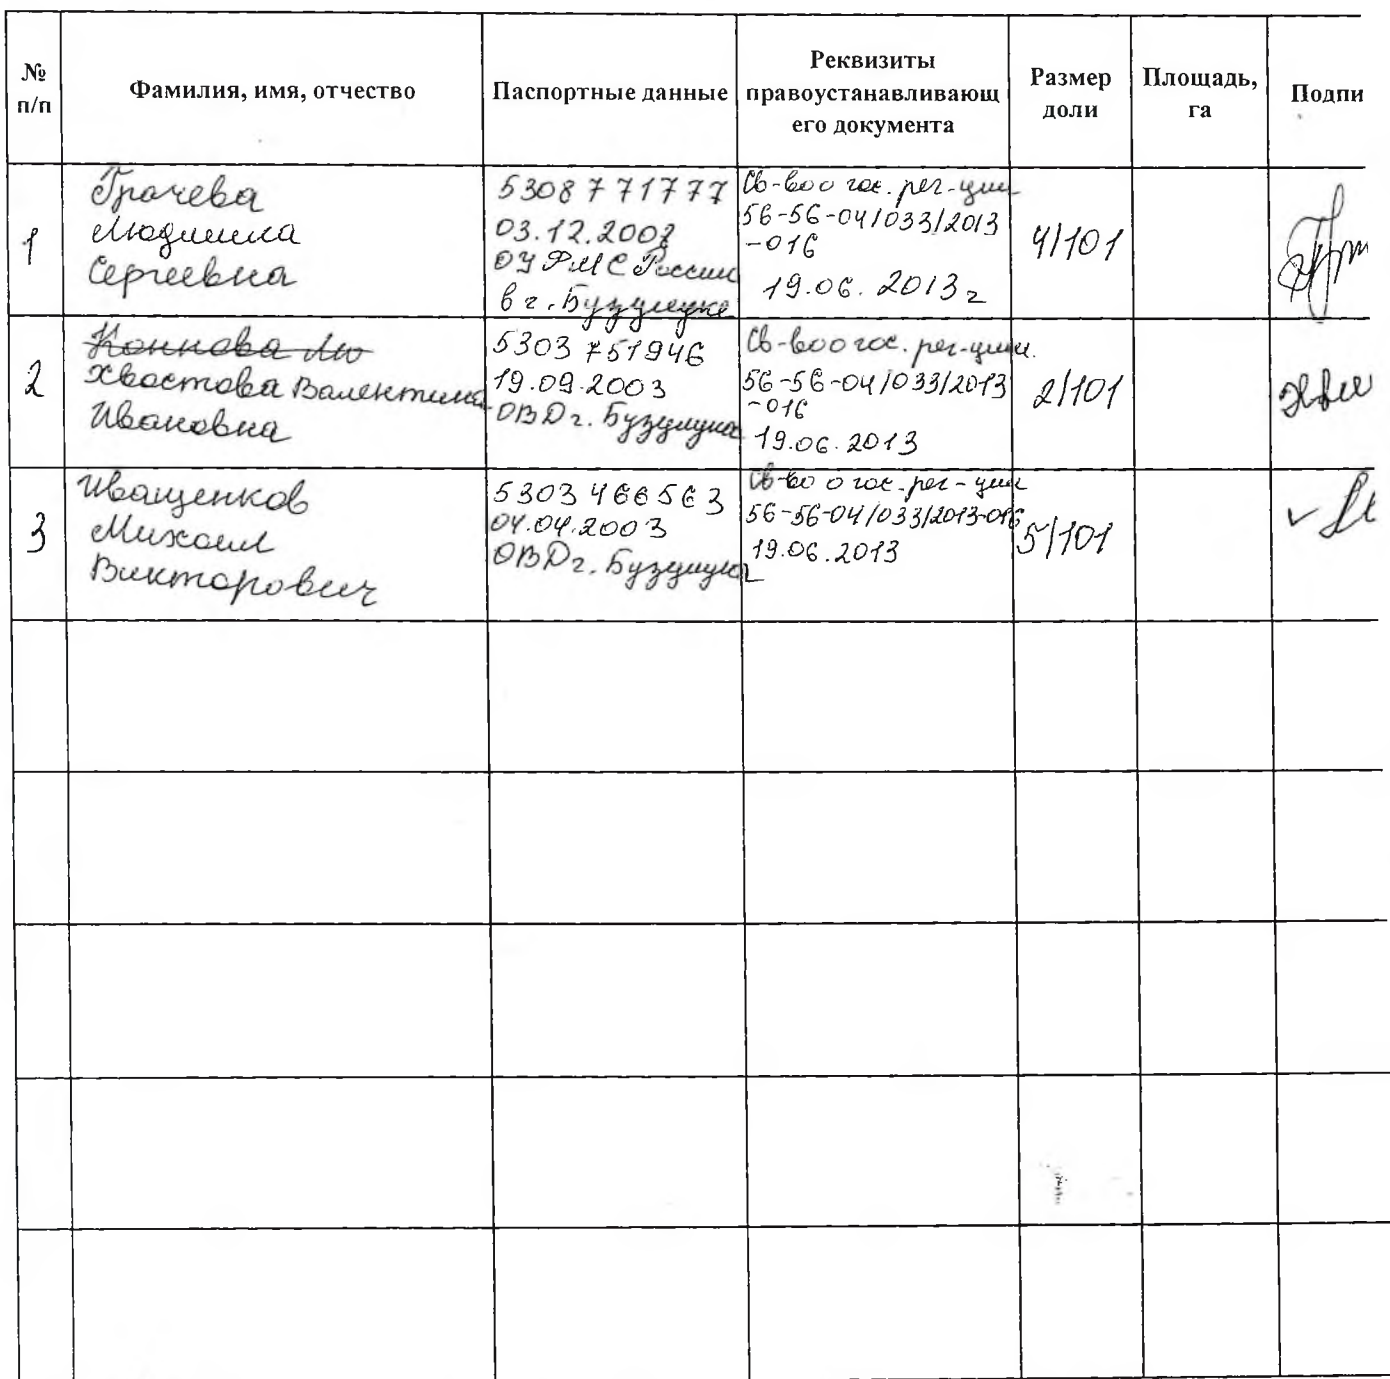 № п/п
Фамилия, имя, отчество
Паспортные данные
Реквизиты правоустанавливающ его документа
Размер доли
Площадь, га
Подпи
1
Грачева
Людмила
Сергеевна
5308 771777
03.12.2008
ОУФМС России
в г. Бузулуке
Св-во о гос. рег-ции
56-56-04/033/2013
-016
19.06.2013 г
4/101
2
Коннова Лю
Хвостова Валентина
Ивановна
5303 751946
19.09.2003
ОВД г. Бузулука
Св-во о гос. рег-ции.
56-56-04/033/2013
-016
19.06.2013
2/101
3
Иващенков
Михаил
Викторович
5303 466563
04.04.2003
ОВД г. Бузулука
Св-во о гос. рег-ции
56-56-04/033/2013-016
19.06.2013
5/101